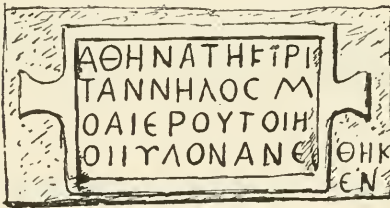 ΑΘΗΝΑΤΗΚΤΡΙ
ΤΑΝΝΗΛΟϹ Μ
ΟΑΙΕΡΟΥΤΟΙΗ
ΟΙΙΥΛΟΝΑΝΕΘΗΚ
ΕΝ